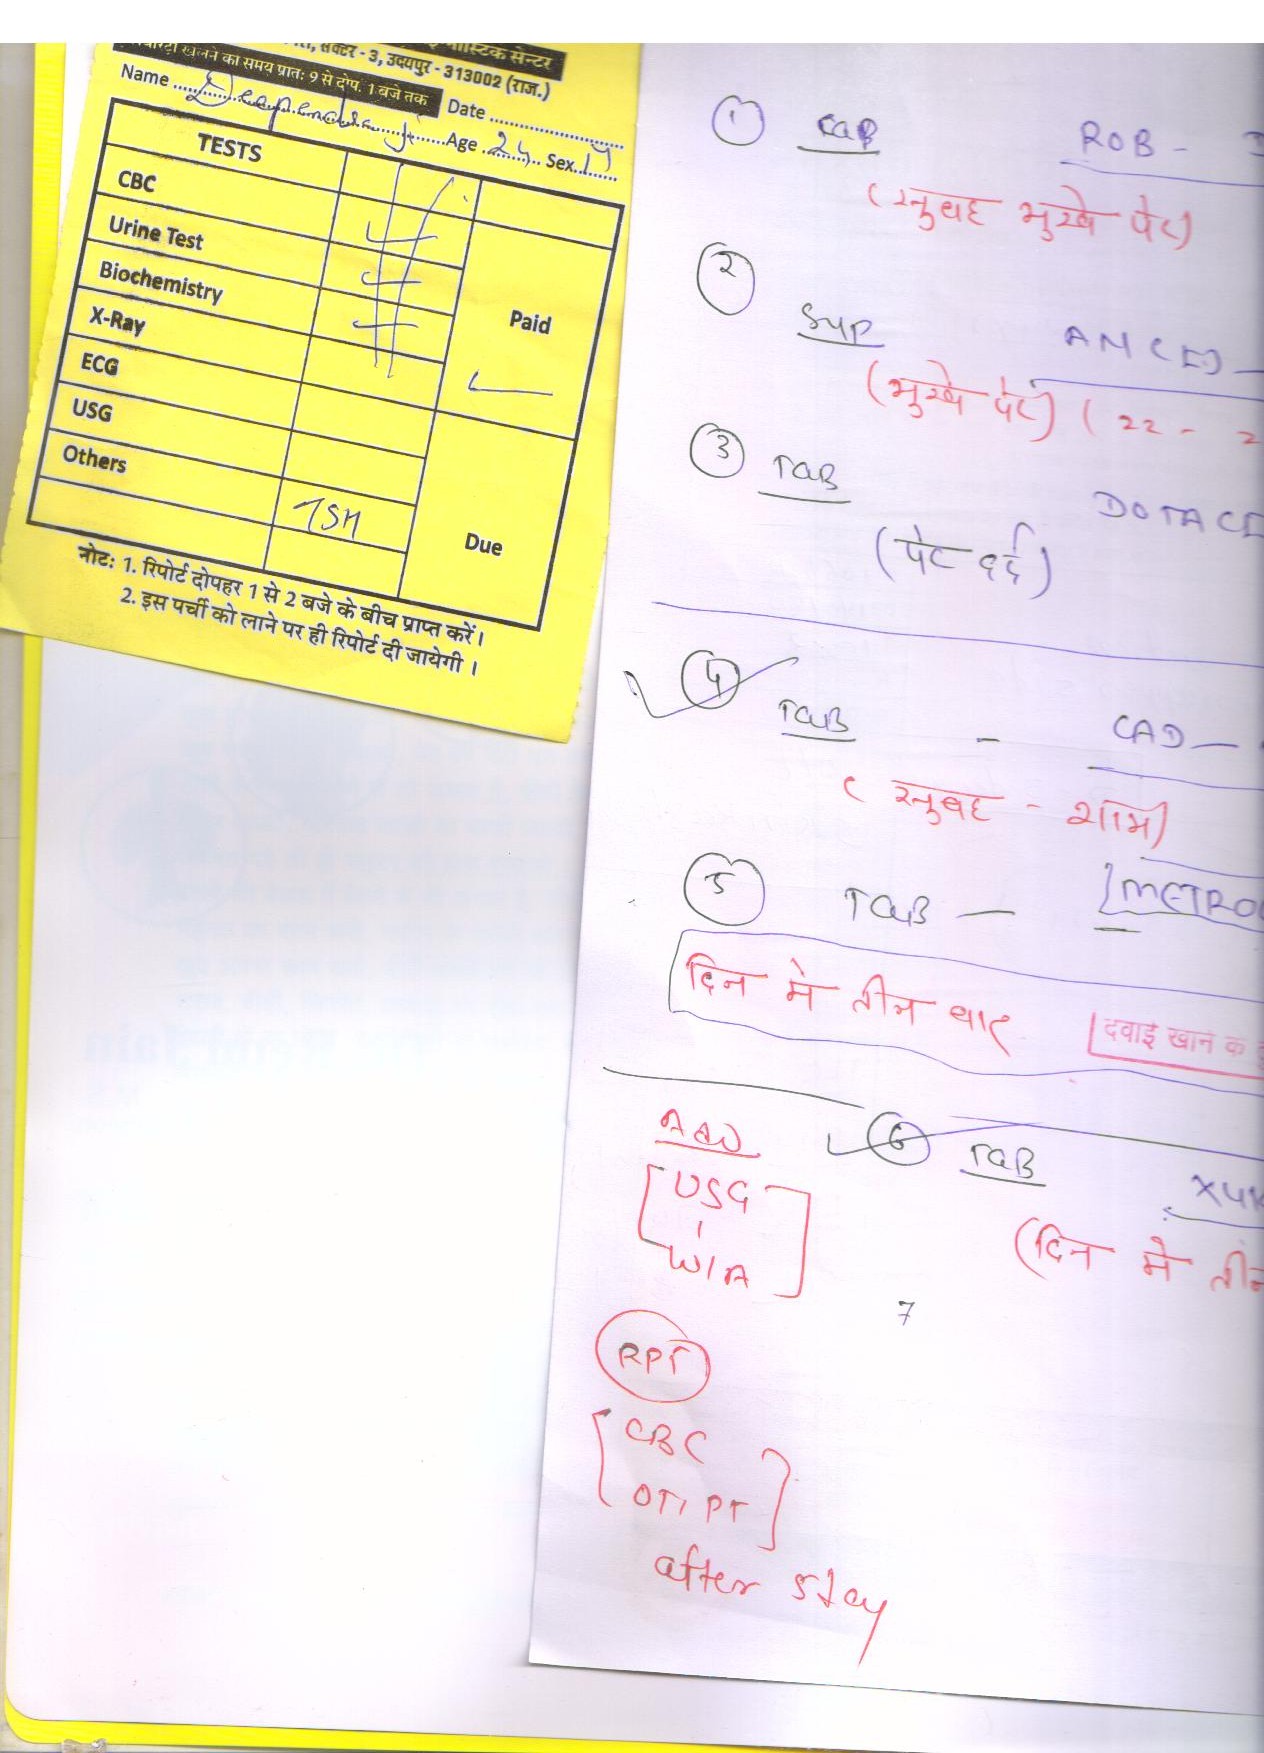 सेक्टर - 3, उदयपुर - 313002 (राज.)
खुलने का समय प्रातः 9 से दोप. 1 बजे तक
Name Deependra Date
Age 24 Sex M
TESTS
CBC
Urine Test
Biochemistry
X-Ray
ECG
USG
Others
TSH
Paid
Due
नोट: 1. रिपोर्ट दोपहर 1 से 2 बजे के बीच प्राप्त करें।
2. इस पर्ची को लाने पर ही रिपोर्ट दी जायेगी ।
① Cap ROB -
(सुबह भुखे पेट)
②
Syp
(भुखे पेट) (22 - 2
③ TaB DOTAC
(पेट दर्द)
④ TaB - CAD -
(सुबह - शाम)
⑤ TaB - METRO
दिन में तीन बार
दवाई खाने क
Adv
USG
W/A
⑥ TaB
(दिन में तीन
7
RPT
CBC
OT/PT
after 5 day